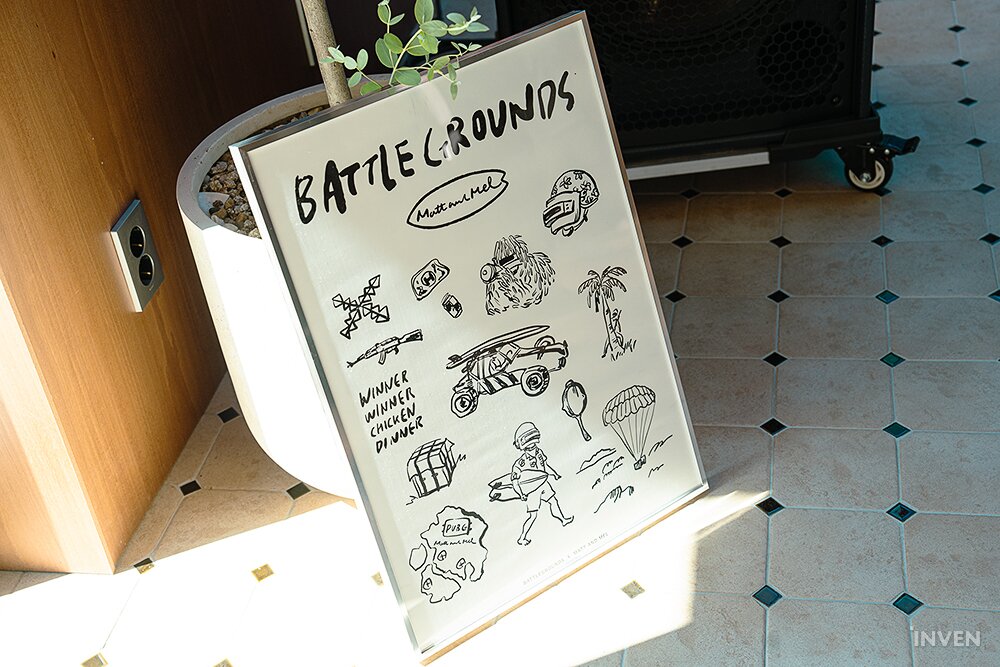 BATTLEGROUNDS
Matt and Mel
WINNER
WINNER
CHICKEN
DINNER
PUBG
Matt and Mel
BATTLEGROUNDS x MATT AND MEL
INVEN